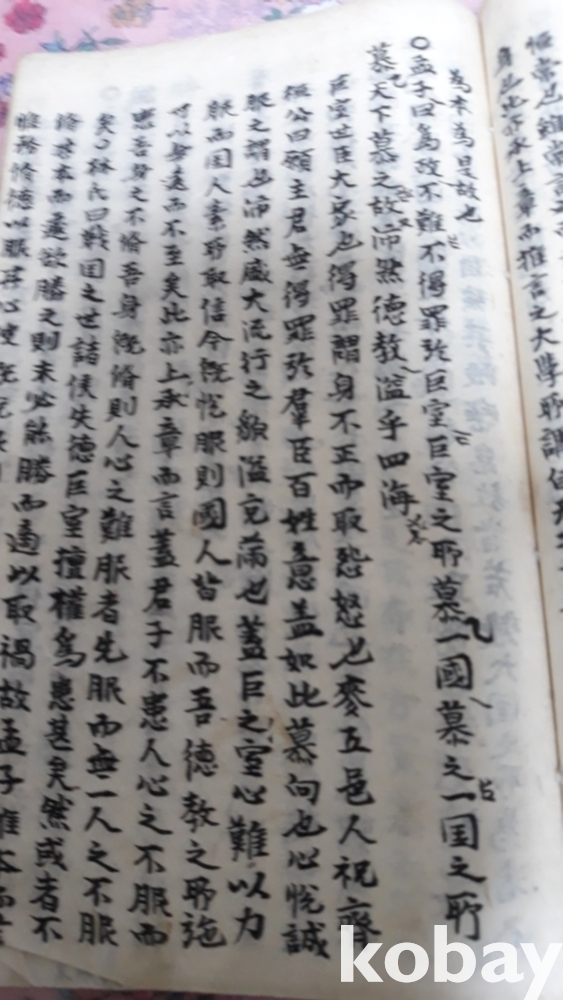 恒常也雖常言之而
身也此亦承上章而推言之大學所謂自天子
為本為是故也
○孟子曰為政不難不得罪於巨室巨室之所慕一國慕之一国之所
慕天下慕之故沛然德教溢乎四海
巨室世臣大家也得罪謂身不正而取怨怒也麥丘邑人祝齊
桓公曰願主君無得罪於羣臣百姓意盖如此慕向也心悅誠
服之謂也沛然盛大流行之貌溢充滿也蓋巨室之心難以力
服而国人素所取信今既悅服則國人皆服而吾德教之所施
可以無遠而不至矣此亦上承章而言蓋君子不患人心之不服而
患吾身之不脩吾身既脩則人心之難服者先服而無一人之不服
矣○林氏曰戰国之世諸侯失德巨室擅權為患甚矣然或者不
脩其本而遽欲勝之則未必能勝而適以取禍故孟子推本而言
惟務脩德以服其心彼既悅
kobay